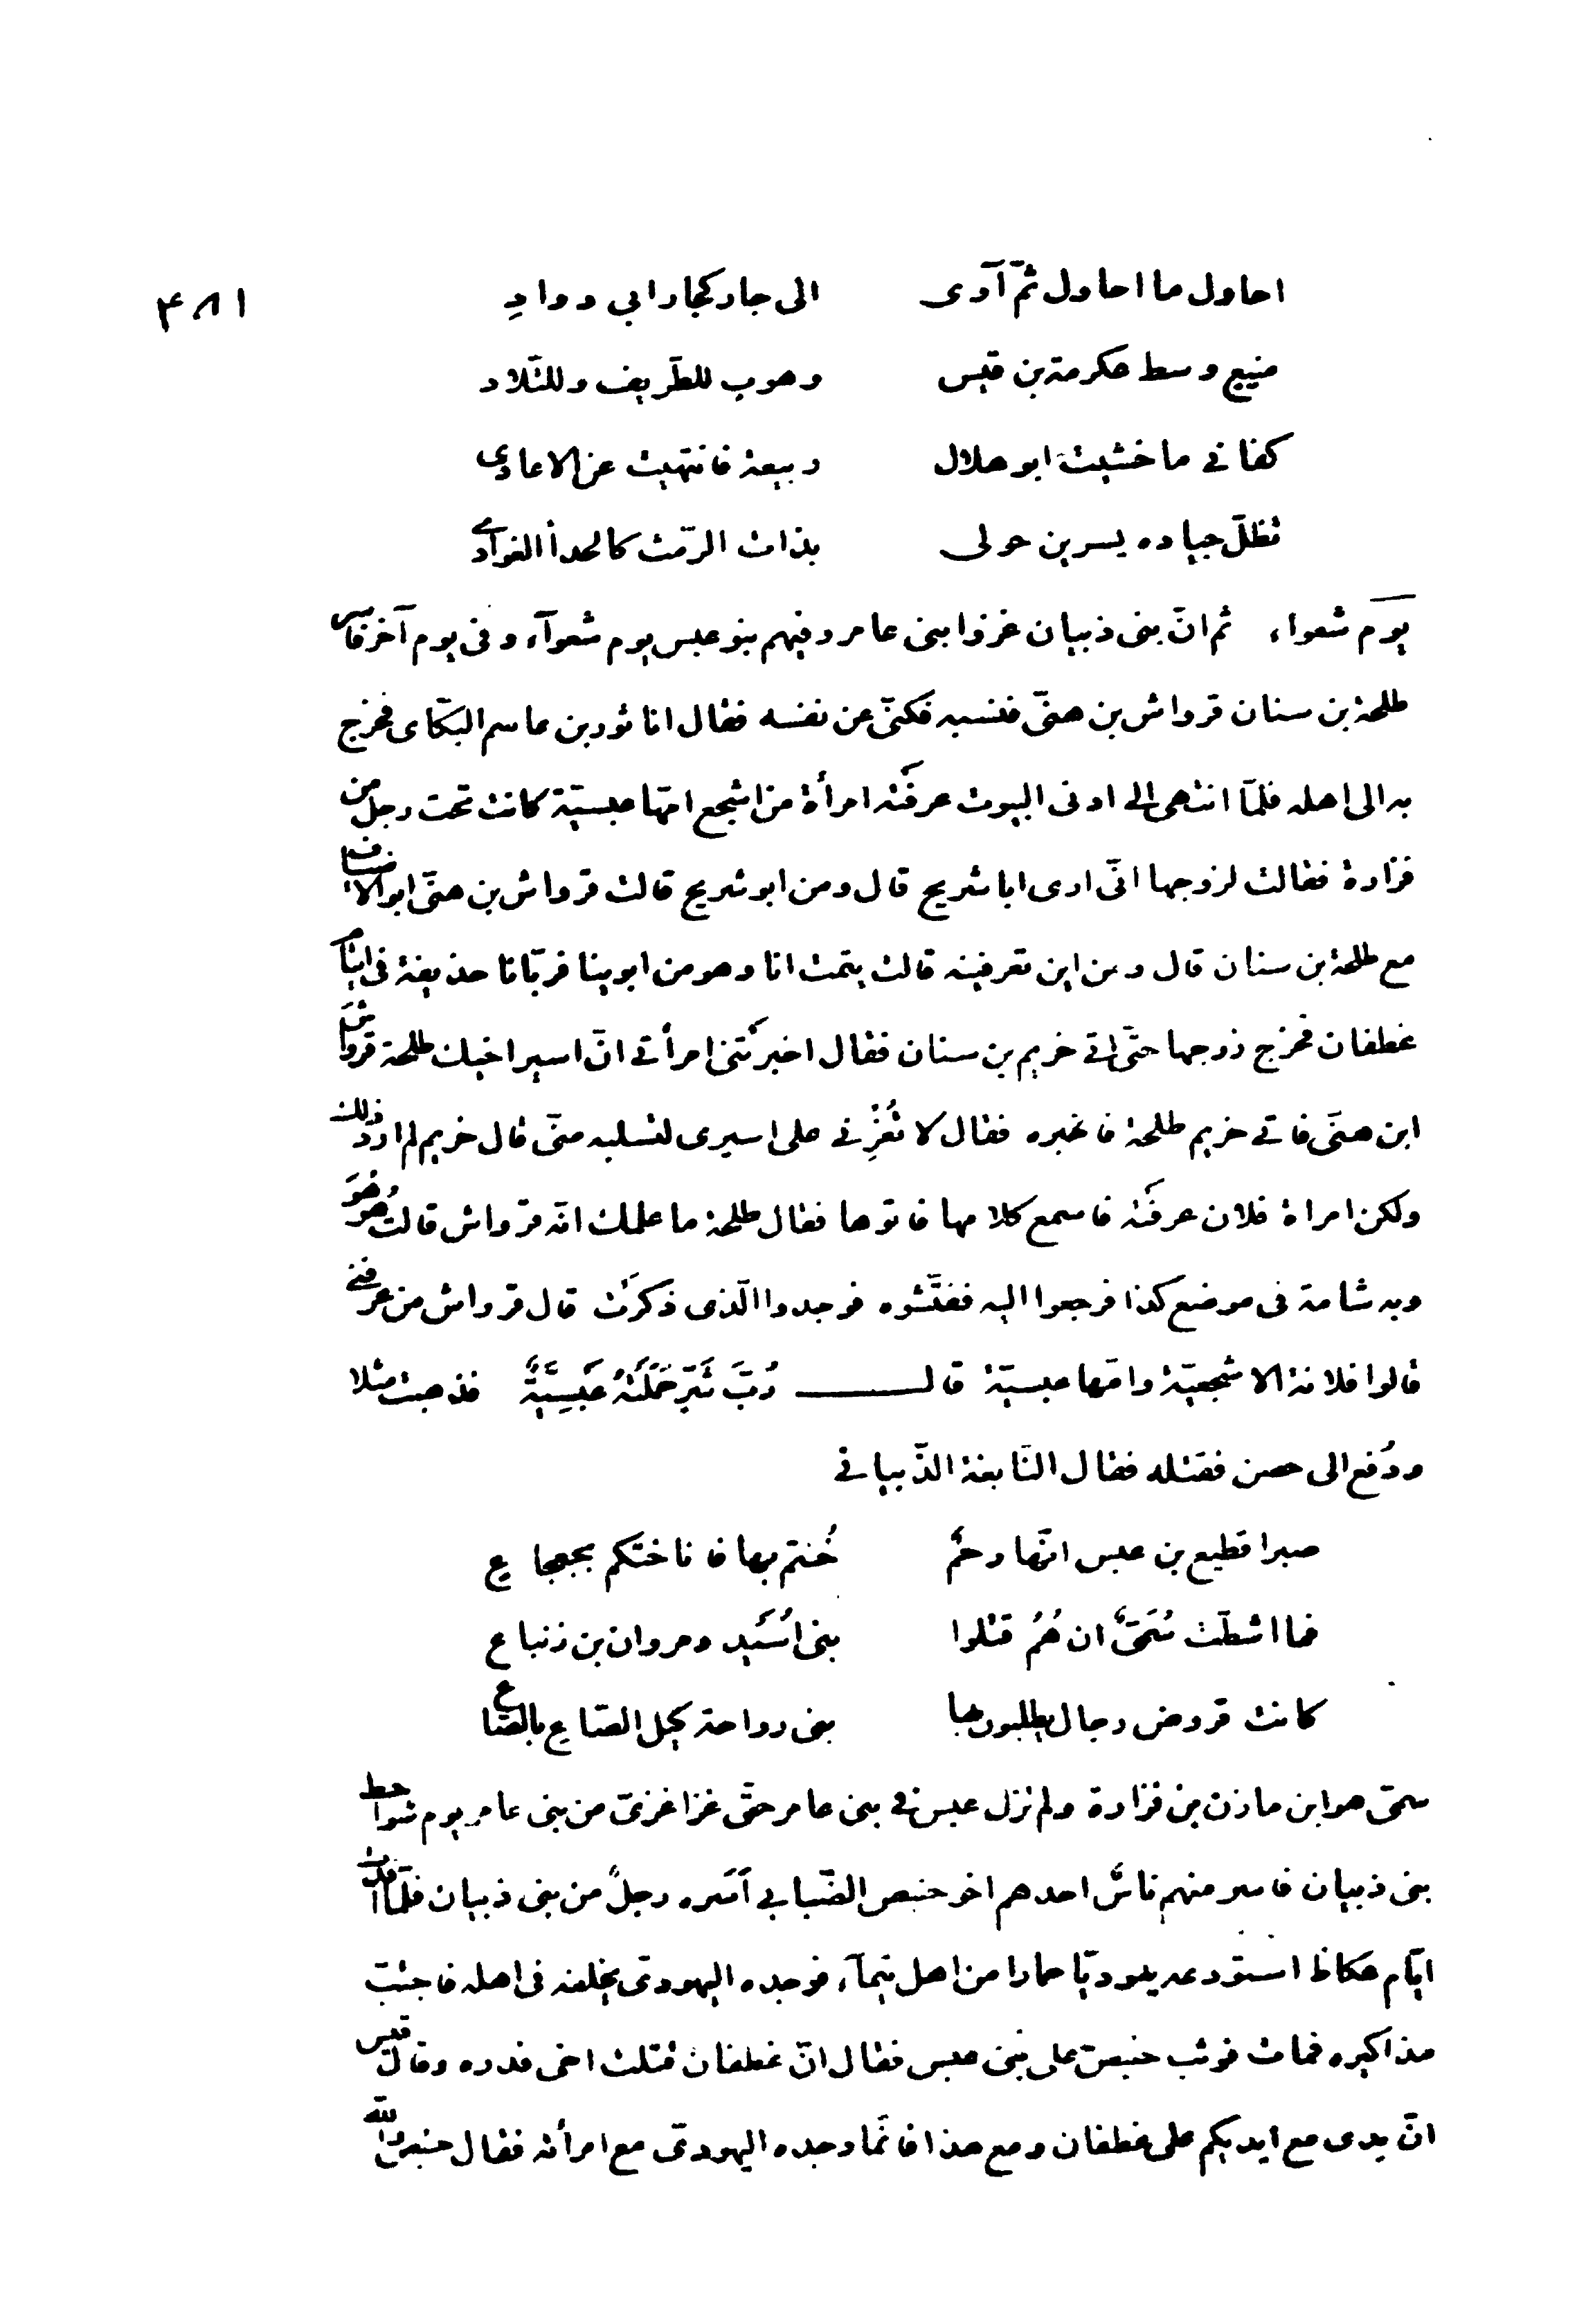 ٤٨١
احاول ما احاول ثمّ آوى الى جار كجار ابي دوادِ
منيع وسط عكرمة بن قيس وهوب للطّريف وللتّلاد
كفاني ما خشيت ابو هلال ربيعة فانتهيت عن الاعادى
تظلّ جياده يسرين حولى بذات الرّمث كالحدأ الغوادى
يوم شعواء ثم انّ بنى ذبيان غزوا بنى عامر وفيهم بنو عبس يوم شعوآء وفى يوم آخر فاسر
طلحة بن سنان قرواش بن هنىّ فنسبه فكنّى عن نفسه فقال انا ثور بن عاسم البكّاى فخرج
به الى اهله فلمّا انتهى الى ادنى البيوت عرفَته امرأة من اشجع امّها عبسيّة كانت تحت رجل من
فزارة فقالت لزوجها انّى ارى ابا شريح قال ومن ابو شريح قالت قرواش بن هنىّ ابو الاضياف
مع طلحة بن سنان قال ومن اين تعرفينه قالت يتمت انا وهو من ابوينا فربّانا حذيفة فى ايتام
غطفان فخرج زوجها حتّى اتى خريم بن سنان فقال اخبرَتنى امرأتى انّ اسير اخيك طلحة قرواش
ابن هنىّ فاتى خريم طلحة فاخبره فقال لا تُغْزِنى على اسيرى لتسلبه منّى قال خريم لم ارد ذلك
ولكن امراة فلان عرفَته فاسمع كلامها فاتوها فقال طلحة ما علمك انّه قرواش قالت هُوَ هُوَ
وبه شامة فى موضع كذا فرجعوا اليه ففتّشوه فوجدوا الّذى ذكرَت قال قرواش من عرفنى
قالوا فلانة الاشجعيّة وامّها عبسيّة قال رُبَّ شَرٍّ حَمَلَتْهُ عَبْسِيَّةٌ فذهبت مثلا
ودُفع الى حصن فقتله فقال النّابغة الذّبيانى
صبرا قطيع بن عبس انّها رحمٌ خُنتم بها فاناختكم بجعجاع
فما اشطّت سُمَىٌّ ان هُمُ قتلوا بنى اُسَيْد ومروان بن زنباع
كانت قروض رجال يطلبون بها بنى رواحة كيل الصّاع بالصّاع
سمىّ هو ابن مازن بن فزارة ولم تزل عبس فى بنى عامر حتّى غزا غزىّ من بنى عامر يوم شواحط
بنى ذبيان فاسر منهم ناسٌ احدهم اخو حنبص الضّبابى اَسَره رجلٌ من بنى ذبيان فلمّا نفدت
ايّام عكاظ استودعه يهوديّا خمارا من اهل تيمآء فوجده اليهودى يخلفه فى اهله فاجتبّ
مذاكيره فمات فوثب حنبص على بنى عبس فقال انّ غطفان قتلت اخى فدوه وقال قيس
انّ يدى مع ايديكم على غطفان ومع هذا فانّما وجده اليهودىّ مع امرأته فقال حنبص والله